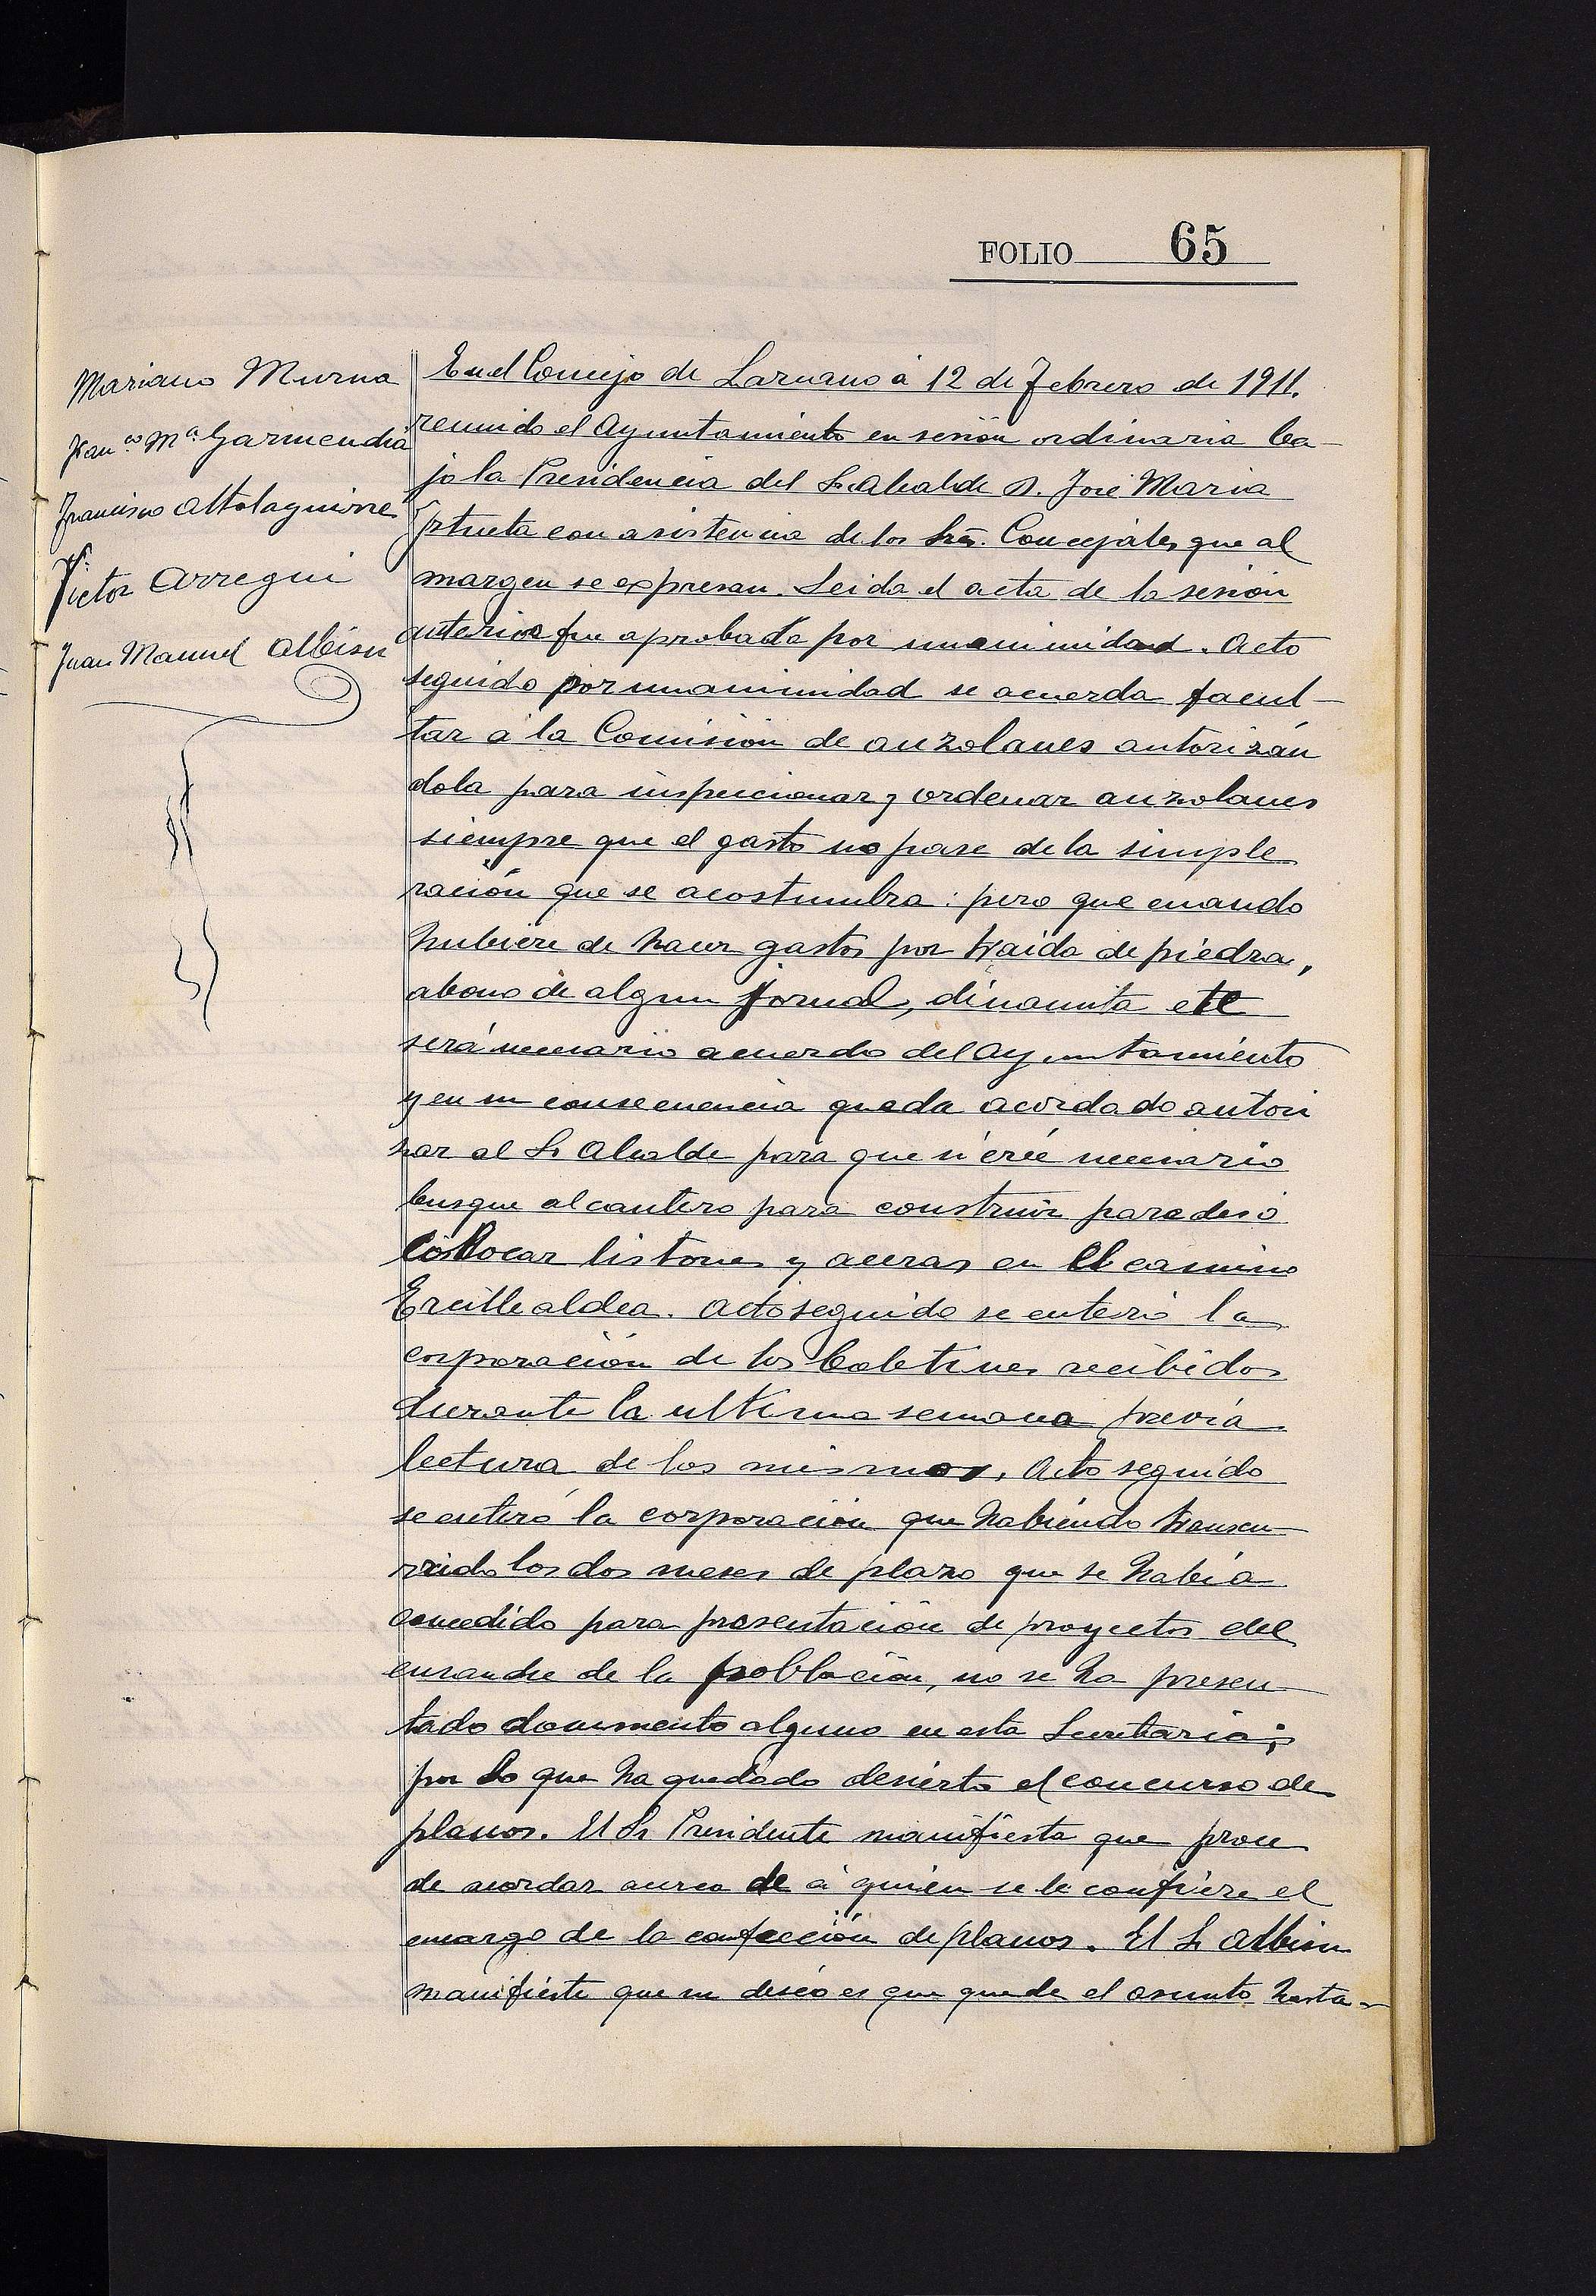 FOLIO 65
Mariano Murua
Fran.co Mª Garmendia
Francisco Altolaguirre
Victor Arregui
Juan Manuel Albisu
En el Concejo de Lazcano á 12 de Febrero de 1911.
reunido el Ayuntamiento en sesión ordinaria ba-
jo la Presidencia del Sr. Alcalde D. José Maria
Iztueta con asistencia de los Sres. Concejales que al
margen se expresan. Leida el acta de la sesión
anterior fue aprobada por unanimidad. Acto
seguido por unanimidad se acuerda facul-
tar á la Comisión de auzolanes autorizán
dola para inspeccionar y ordenar auzolanes
siempre que el gasto no pase de la simple
ración que se acostumbra: pero que cuando
hubiere de hacer gastos por traida de piedra,
abono de algun jornal, dinamita etc
será necesario acuerdo del Ayuntamiento
y en su consecuencia queda acordado autori
zar al Sr Alcalde para que si crée necesario
busque al cantero para construir paredes ó
colocar listones y aceras en el camino
Ercille aldea. Acto seguido se enteró la
corporación de los boletines recibidos
durante la ultima semana previa
lectura de los mismos. Acto seguido
se enteró la corporación que habiendo transcu-
rrido los dos meses de plazo que se había
concedido para presentación de proyectos del
ensanche de la población, no se ha presen-
tado documento alguno en esta Secretaria;
por lo que ha quedado desierto el concurso de
planos. El Sr Presidente manifiesta que proce
de acordar acerca de á quién se le confiere el
encargo de la confección de planos. El Sr Albisu
manifiesta que su deseo es que quede el asunto hasta-